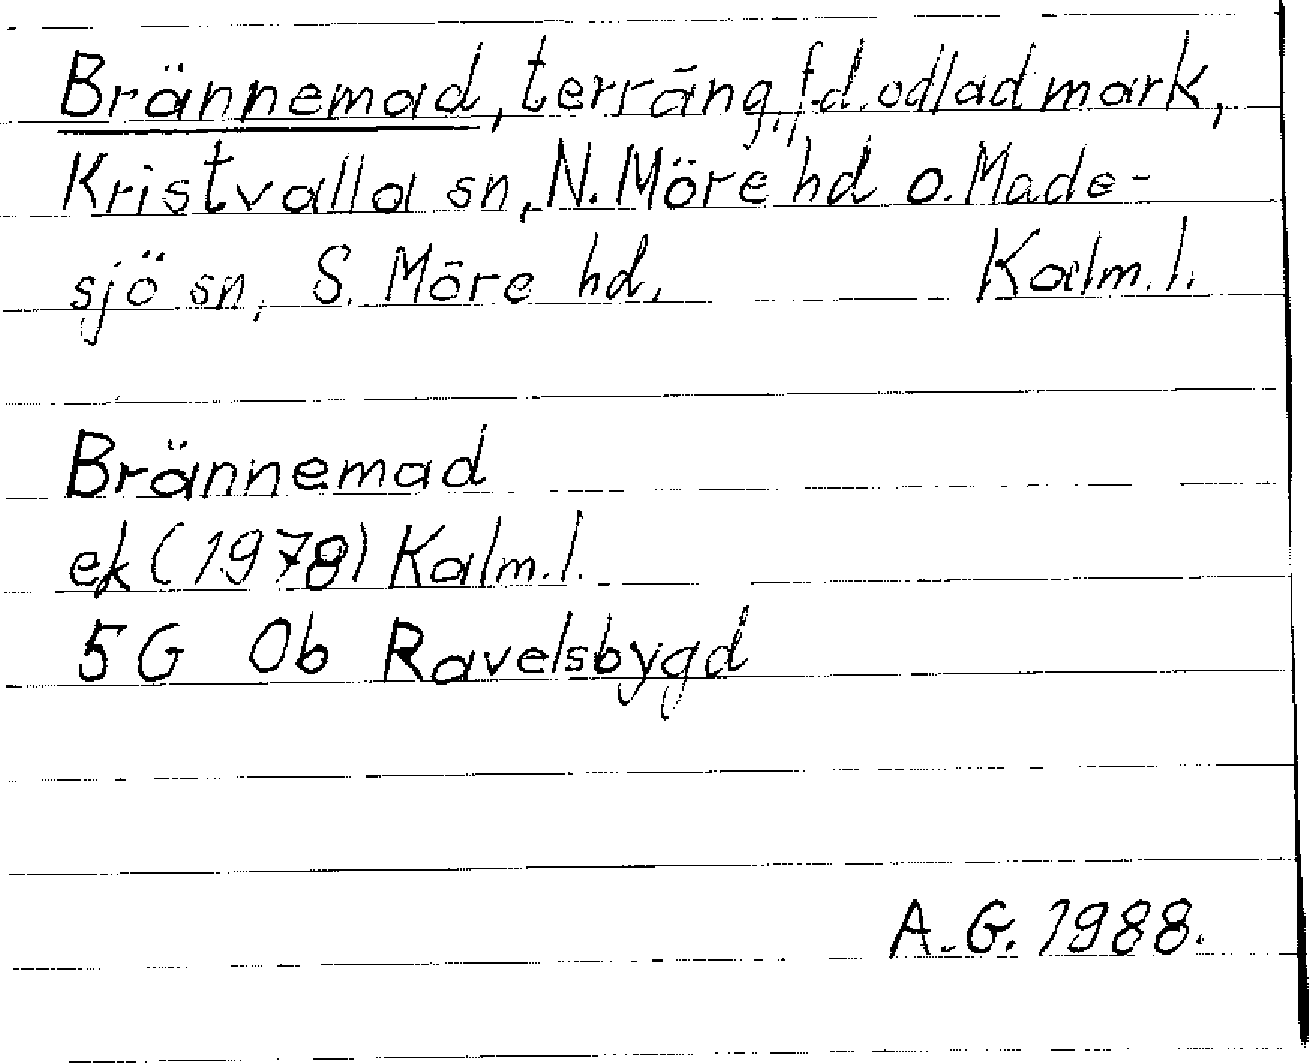 Brännemad, terräng, f.d. odlad mark,
Kristvalla sn, N. Möre hd o. Made-
sjö sn, S. Möre hd. Kalm. l.
Brännemad
ek (1978) Kalm. l.
5G 0b Ravelsbygd
A.G. 1988.